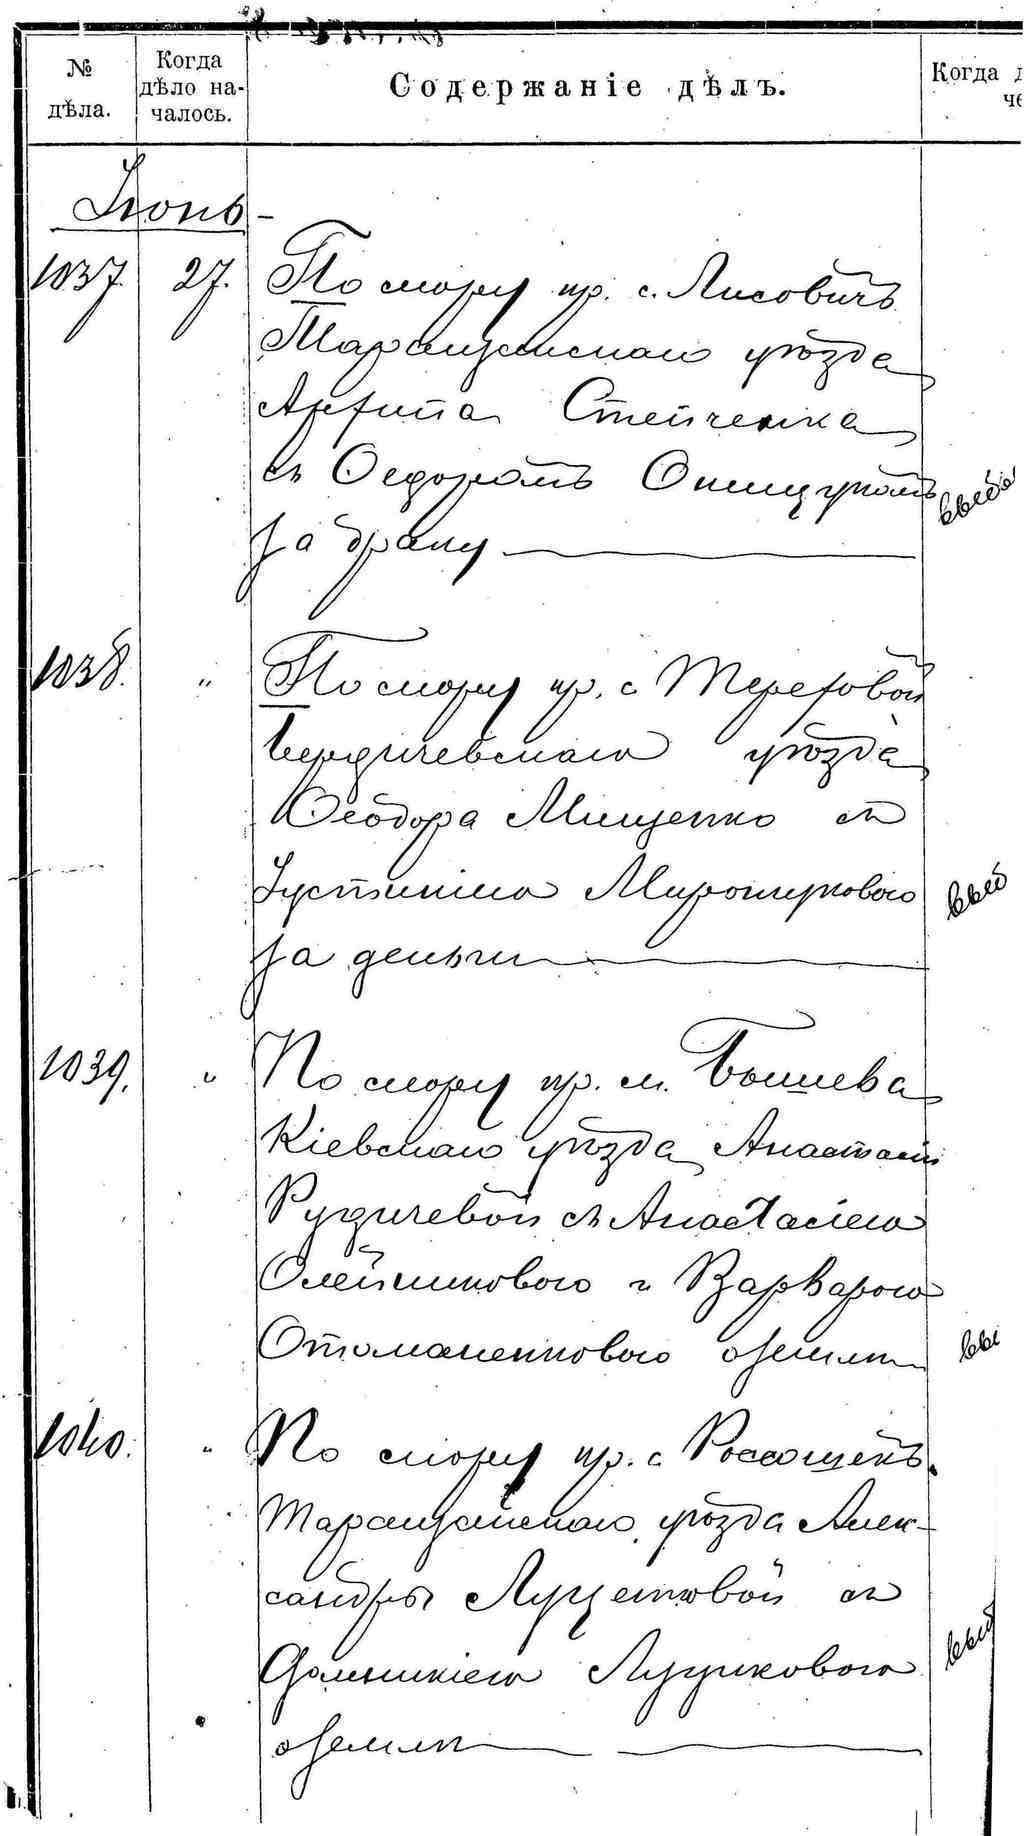 № дѣла.
Когда дѣло на-
чалось.
Содержаніе дѣлъ.
Когда
Іюнь
1037. 27. По спору кр. с. Лисовичъ
Таращанскаго уѣзда
Архипа Стейченка
съ Ѳедоромъ Онищукомъ
за драку
1038. " По спору кр. с.
Бердичевскаго уѣзда
Ѳеодора Мищенко съ
Іустиніею Мирошуковою
за деньги
1039. " По спору кр. м. Бышева
Кіевскаго уѣзда Анастасіи
Рудичевой съ Анастасіею
Олейниковою и Варварою
Отаманенковою о землѣ
1040. " По спору кр. с. Россошекъ
Таращанскаго уѣзда Алек-
сандры Луценковой съ
Домникіею Луциковою
о землѣ